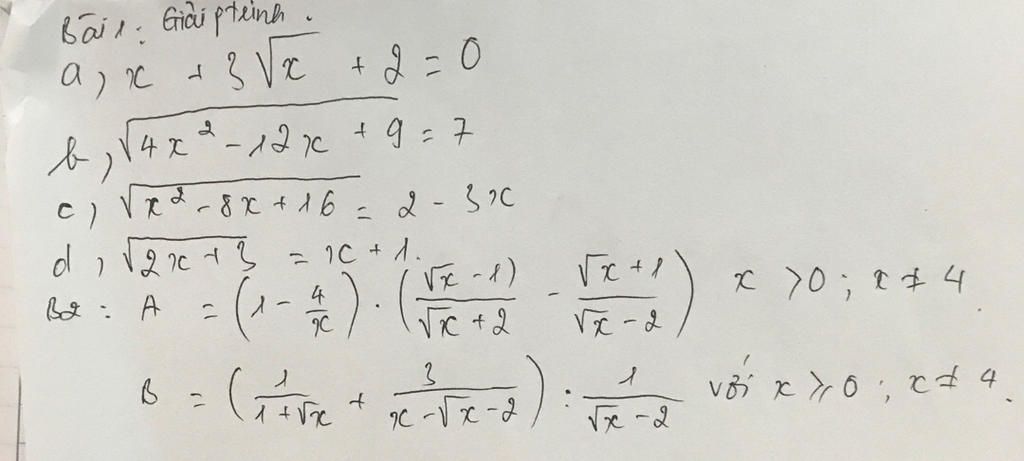 Bài 1: Giải ptrình.
a, x + 3√x + 2 = 0
b, √(4x² - 12x + 9) = 7
c, √(x² - 8x + 16) = 2 - 3x
d, √(2x + 3) = x + 1.
B2: A = (1 - 4/x) . ((√x - 1)/(√x + 2) - (√x + 1)/(√x - 2)) x > 0; x ≠ 4
B = (1/(1 + √x) + 3/(x - √x - 2)) : 1/(√x - 2) với x ⩾ 0; x ≠ 4.